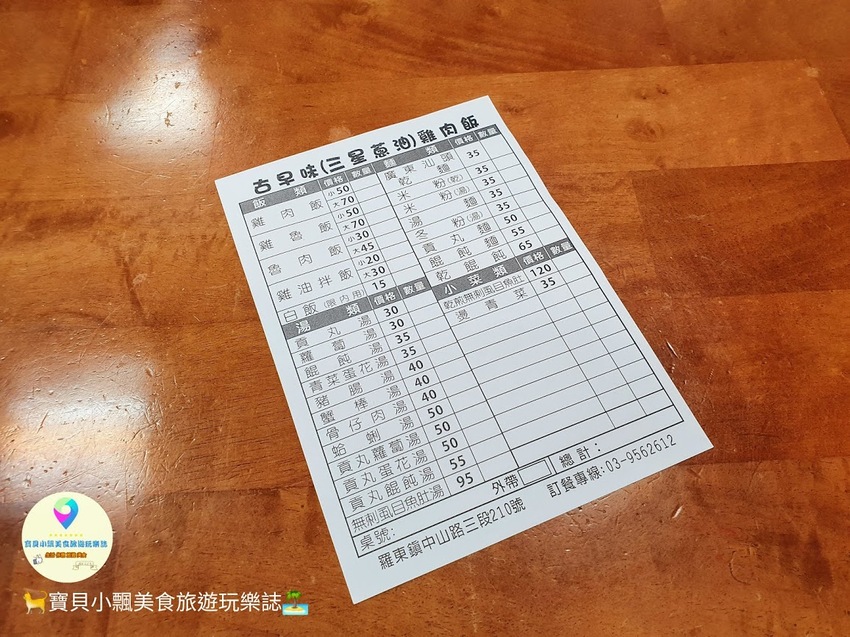 古早味(三星蔥油)雞肉飯
飯類 價格 數量
雞肉飯 小50
大70
雞魯飯 小50
大70
魯肉飯 小30
大45
雞油拌飯 小20
大30
白飯(限內用) 15
湯類 價格 數量
貢丸湯 30
蘿蔔湯 30
餛飩湯 35
青菜蛋花湯 35
豬腸湯 40
蟹棒湯 40
骨仔肉湯 40
蛤蜊湯 50
貢丸蘿蔔湯 50
貢丸蛋花湯 50
貢丸餛飩湯 55
無刺虱目魚肚湯 95
麵類 價格 數量
廣東汕頭乾麵 35
米粉(乾) 35
米粉(湯) 35
湯麵 35
冬粉(湯) 35
貢丸麵 50
餛飩麵 55
乾餛飩 65
小菜類 價格 數量
乾煎無刺虱目魚肚 120
燙青菜 35
桌號: 外帶 總計:
羅東鎮中山路三段210號 訂餐專線:03-9562612
寶貝小飄美食旅遊玩樂誌
寶貝小飄美食旅遊玩樂誌